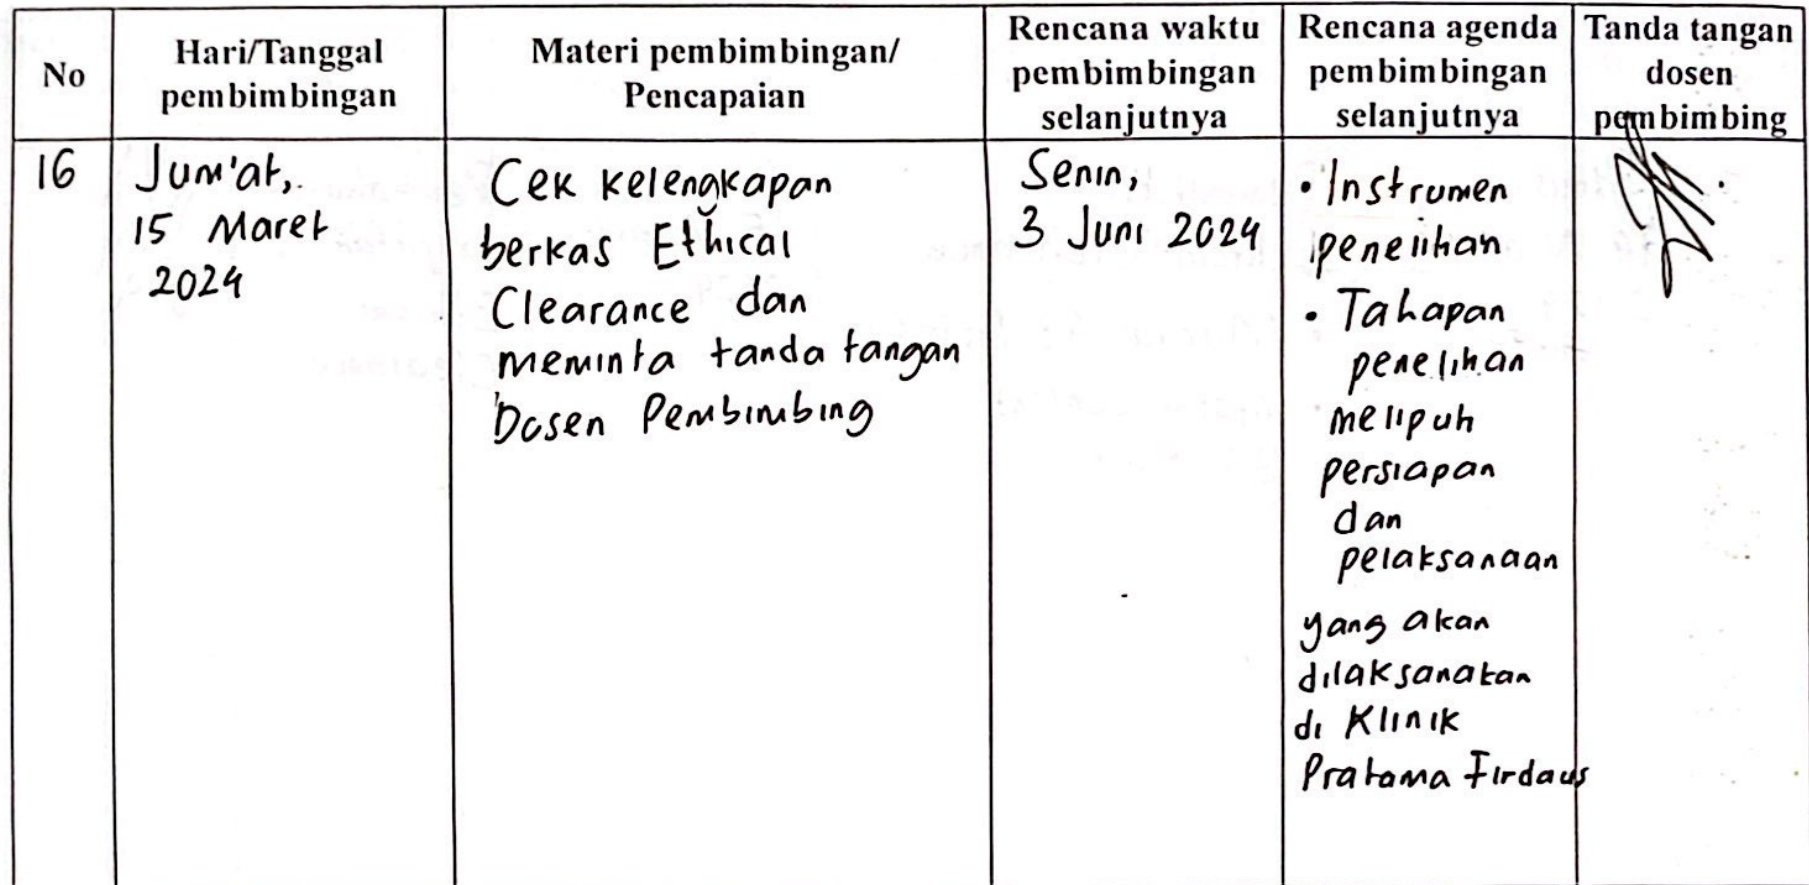 No
Hari/Tanggal
pembimbingan
Materi pembimbingan/
Pencapaian
Rencana waktu
pembimbingan
selanjutnya
Rencana agenda
pembimbingan
selanjutnya
Tanda tangan
dosen
pembimbing
16
Jum'at,
15 Maret
2024
Cek Kelengkapan
berkas Ethical
Clearance dan
meminta tanda tangan
Dosen Pembimbing
Senin,
3 Juni 2024
• Instrumen
penelitian
• Tahapan
penelitian
meliputi
persiapan
dan
pelaksanaan
yang akan
dilaksanakan
di Klinik
Pratama Firdaus